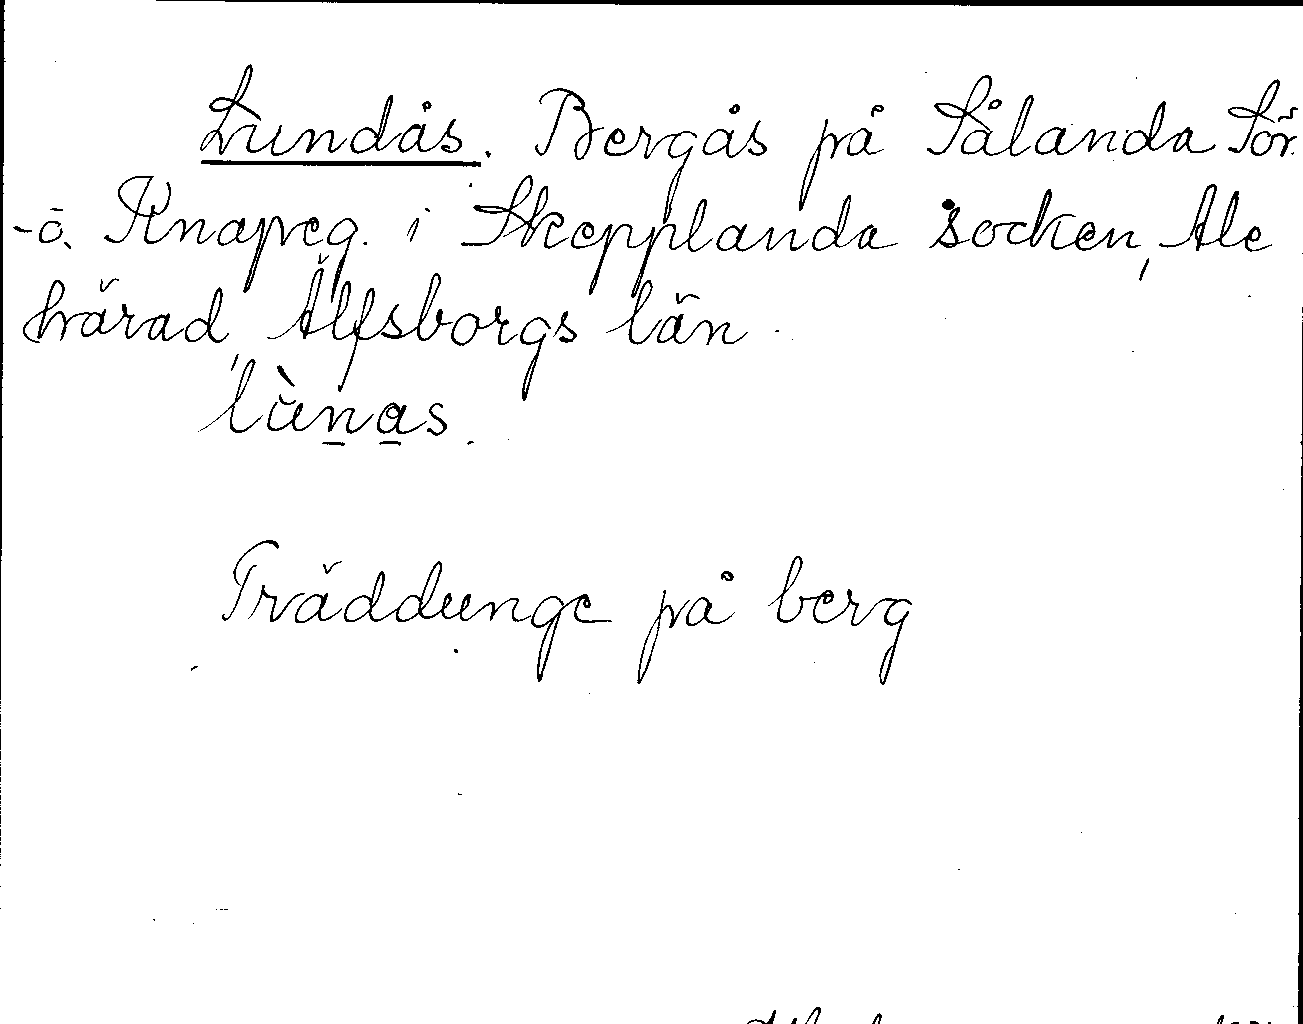 Lundås. Bergås på Sålanda Sör.
-ö. Knapeg. i Skepplanda socken, Ale
härad, Älfsborgs län.
lùn̲a̲s.
Träddunge på berg